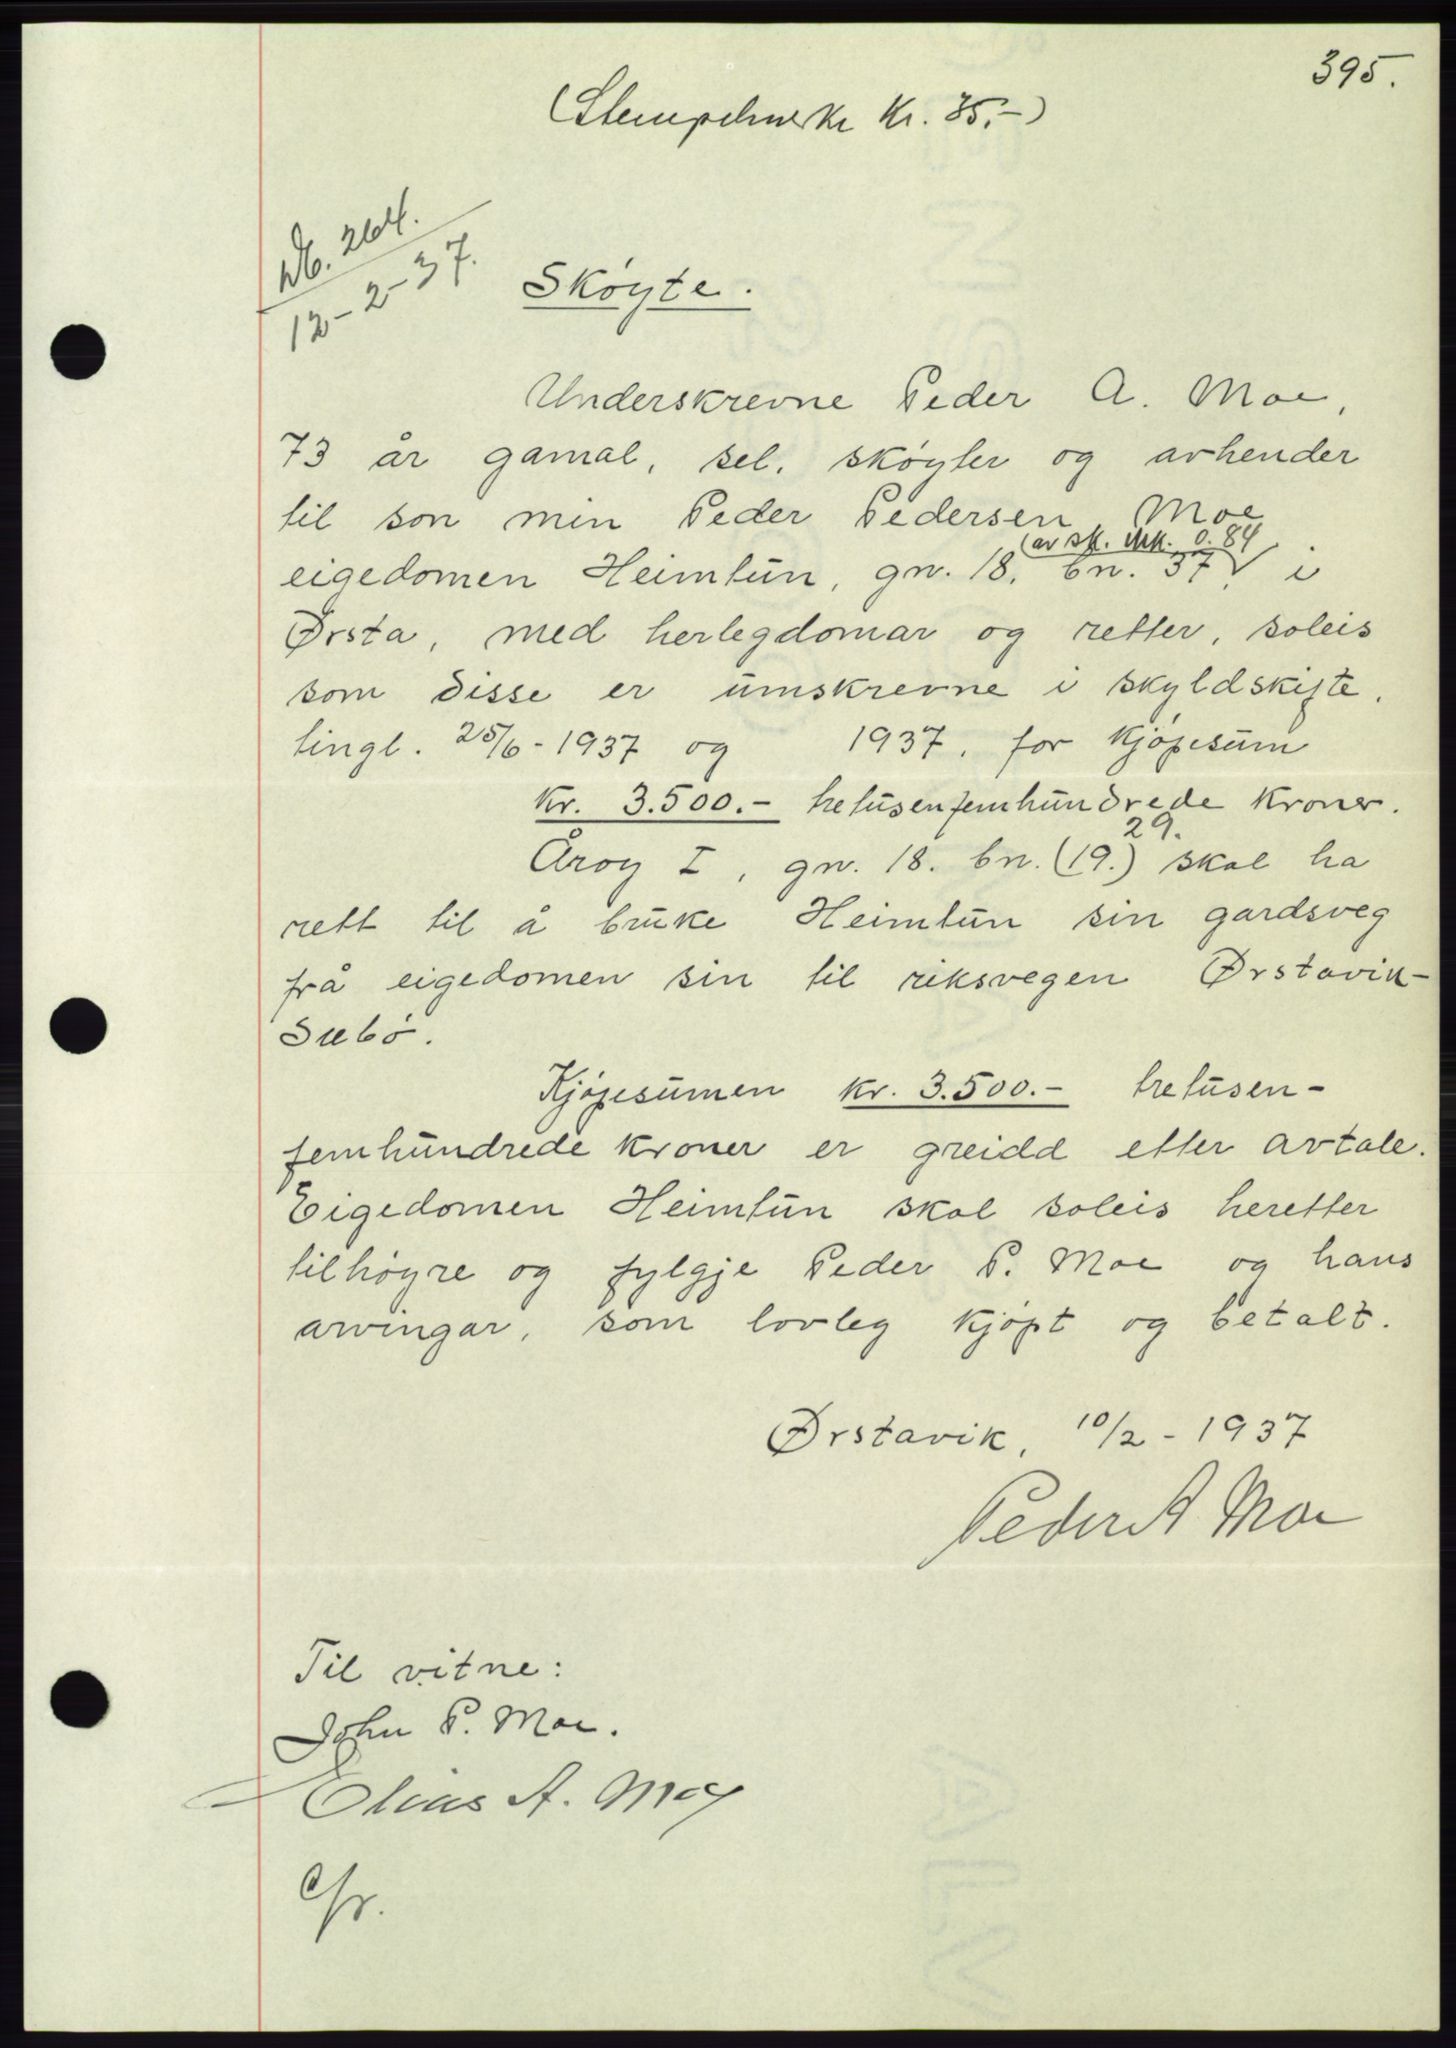 395.
(Stempelmerke Kr. 35,-)
Nb. 264.
12-2-37.
Skøyte.
Underskrevne Peder A. Moe,
73 år gamal, sel, skøyter og avhender
til son min Peder Pedersen Moe
(av sk. mk. 0.84
eigedomen Heimtun, gn. 18, bn. 37, i
Ørsta, med herlegdomar og retter, soleis
som disse er umskrevne i skyldskifte,
tingl. 25/6-1937 og 1937, for kjøpesum
kr. 3.500.- tretusenfemhundrede kroner.
29.
Årøy I, gn. 18. bn. (19.) skal ha
rett til å bruke Heimtun sin gardsveg
frå eigedomen sin til riksvegen Ørstavik-
Sæbø.
Kjøpesumen kr. 3.500.- tretusen-
femhundrede kroner er greidd etter avtale.
Eigedomen Heimtun skal soleis heretter
tilhøyre og fylgje Peder P. Moe og hans
arvingar, som lovleg kjøpt og betalt.
Ørstavik, 10/2-1937
Peder A Moe
Til vitne:
John P. Moe.
Elias A. Moy